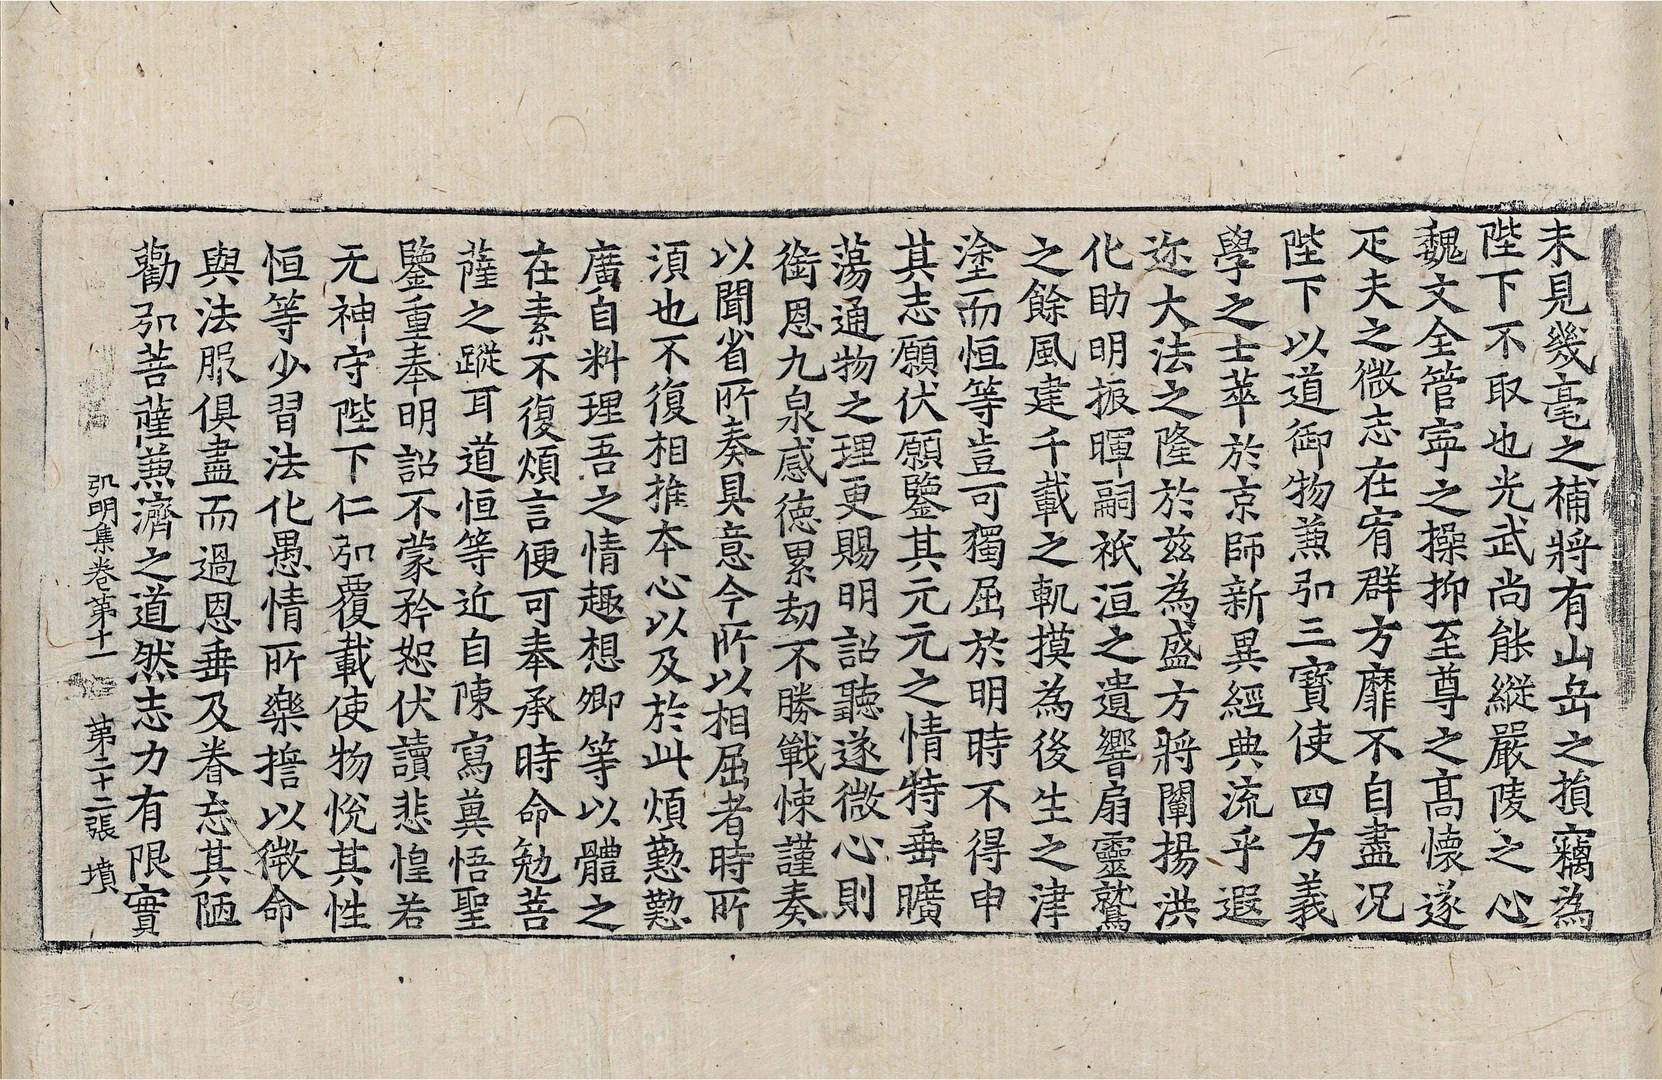 未見幾毫之補將有山岳之損竊為
陛下不取也光武尚能縱嚴陵之心
魏文全管寧之操抑至尊之高懷遂
疋夫之微志在宥群方靡不自盡況
陛下以道御物兼弘三寶使四方義
學之士萃於京師新異經典流乎遐
迩大法之隆於兹為盛方將闡揚洪
化助明振暉嗣祇洹之遺響扇靈鷲
之餘風建千載之軌摸為後生之津
塗而恒等豈可獨屈於明時不得申
其志願伏願鑒其元元之情特垂曠
蕩通物之理更賜明詔聽遂微心則
銜恩九泉感德累劫不勝戰悚謹奏
以聞省所奏具意今所以相屈者時所
須也不復相推本心以及於此煩懃懃
廣自料理吾之情趣想卿等以體之
在素不復煩言便可奉承時命勉菩
薩之蹤耳道恒等近自陳寫奠悟聖
鑒重奉明詔不蒙矜恕伏讀悲惶若
无神守陛下仁弘覆載使物悅其性
恒等少習法化愚情所樂擔以微命
與法服俱盡而過恩垂及眷忘其陋
勸弘菩薩兼濟之道然志力有限實
弘明集卷第十一 第二十二張 墳